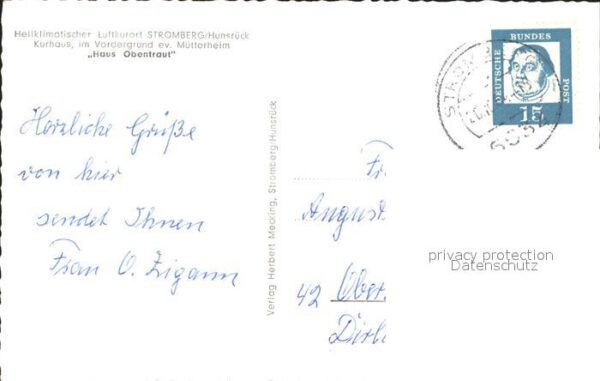 Heilklimatischer Luftkurort STROMBERG/Hunsrück
Kurhaus, im Vordergrund ev. Mütterheim
„Haus Obentraut"
Herzliche Grüße
von hier
sendet Ihnen
Frau O. Zigann
Verlag Herbert Mecking, Stromberg/Hunsrück
DEUTSCHE BUNDES POST
15
Fr.
August
42 Ober.
Dirl
privacy protection
Datenschutz